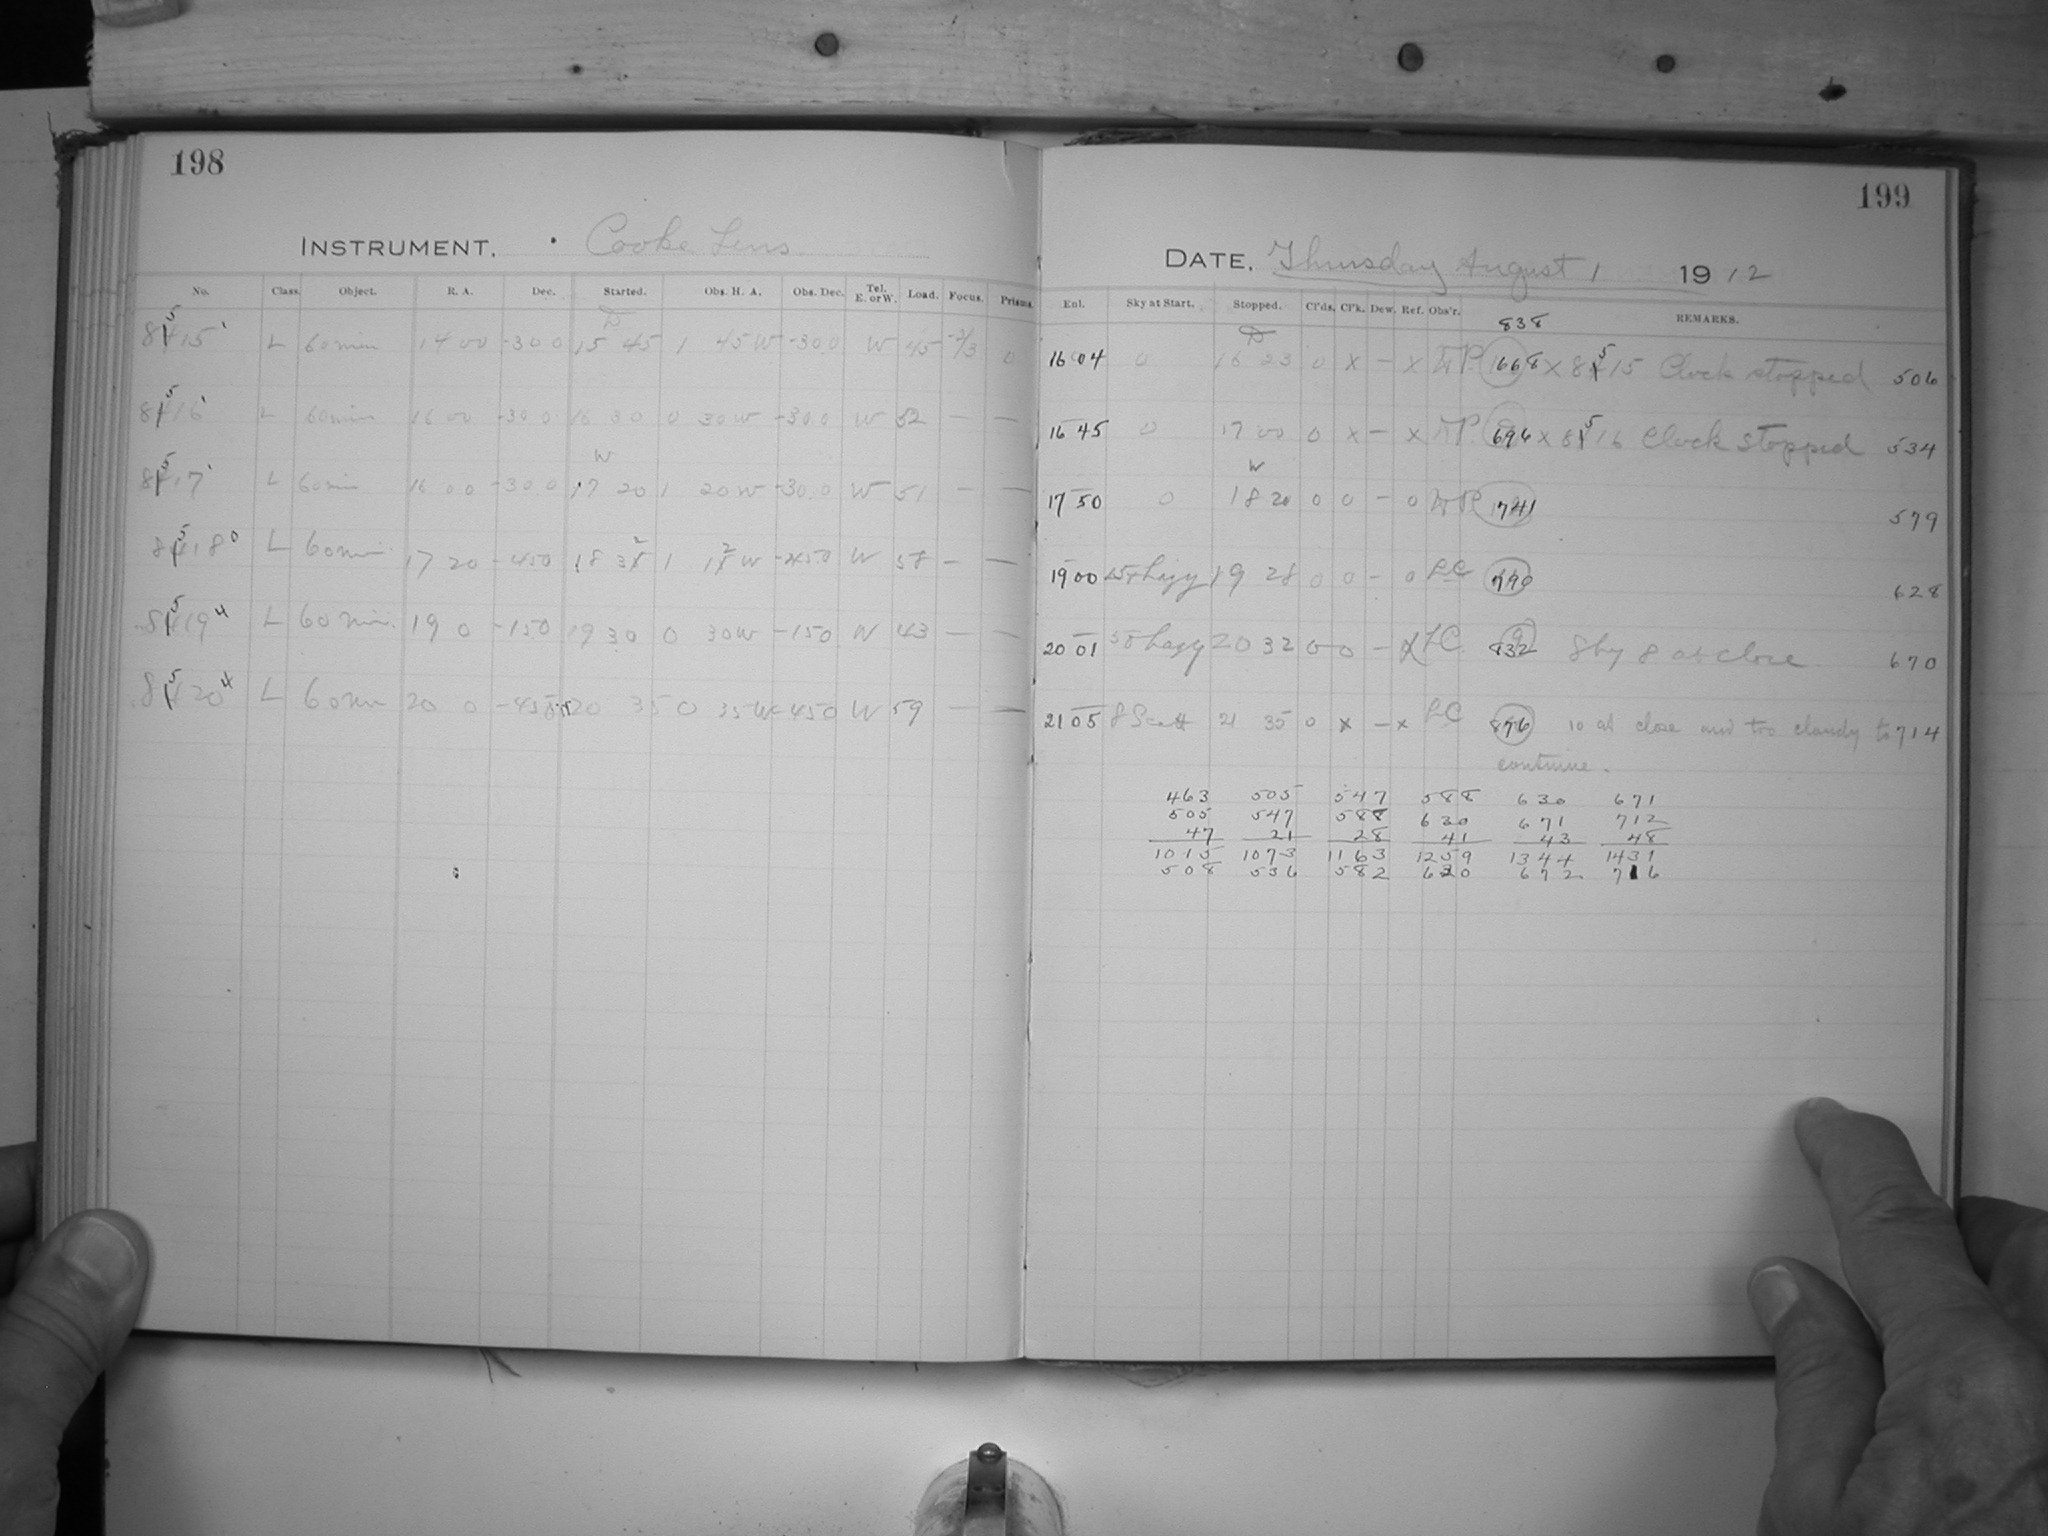 198
INSTRUMENT. Cooke Lens
No. Class. Object. R. A. Dec. Started. Obs. H. A. Obs. Dec. Tel. E. or W. Load. Focus. Prisms.
D
8515 L 60 min 14 00 -30 0 15 45 1 45 W -30.0 W 45 0
8516 L 60 min 16 00 -30 0 16 30 0 30 W -30.0 W 52 — —
W
8517 L 60 min 16 00 -30 0 17 20 1 20 W -30.0 W 51 — —
8518 L 60 min. 17 20 -450 18 32 1 12 W -450 W 58 — —
8519 L 60 min. 19 0 -150 19 30 0 30 W -150 W 43 — —
8520 L 60 min 20 0 20 35 0 35 W -450 W 59 — —
199
DATE. Thursday August 1 1912
Enl. Sky at Start. Stopped. Cl'ds. Cl'k. Dew. Ref. Obs'r. REMARKS.
838
D
16 04 0 16 23 0 x — x 668 x 8515 Clock stopped 506
16 45 0 17 00 0 x — x 696 x 8516 Clock stopped 534
W
17 50 0 18 20 0 0 — 0 741 579
19 00 hazy 19 28 0 0 — 0 LC 790 628
20 01 hazy 20 32 0 0 — LC 832 Sky 8 at close 670
21 05 8 Scatt 21 35 0 x — x LC 876 10 at close and too cloudy to 714
continue.
463 505 547 588 630 671
505 547 588 630 671 712
47 21 28 41 43 48
1015 1073 1163 1259 1344 1431
508 536 582 630 672 716